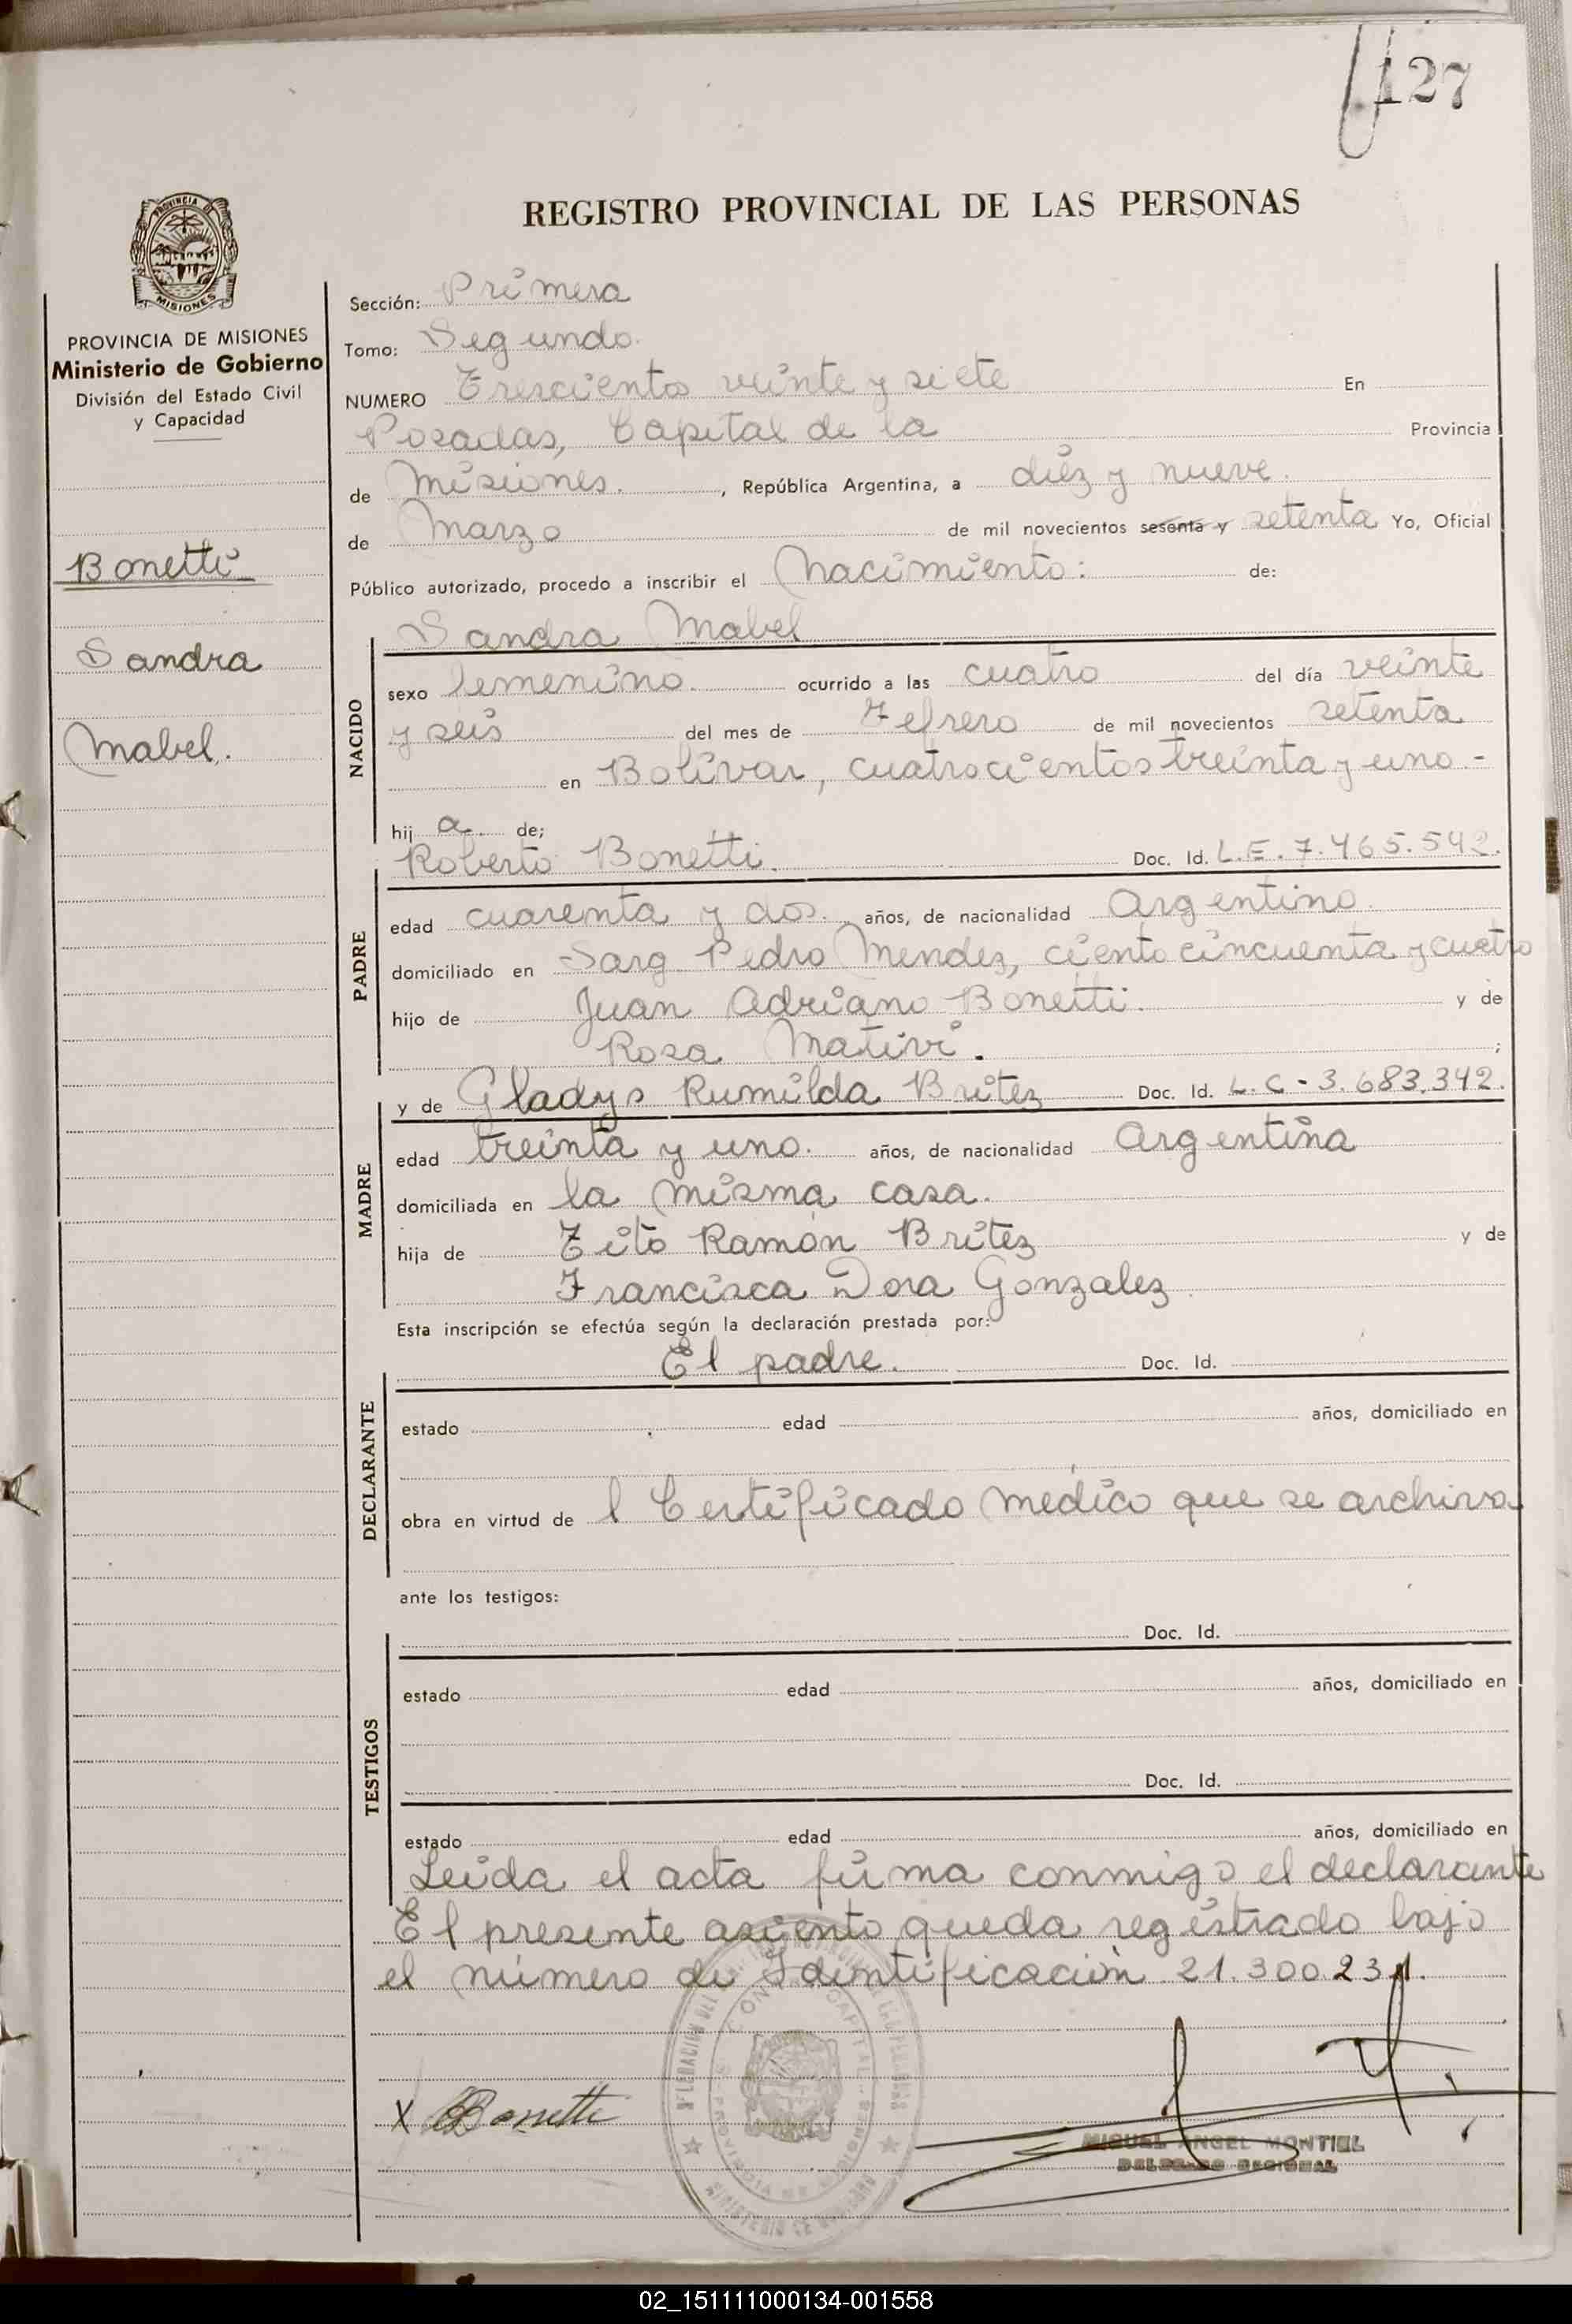 127
REGISTRO PROVINCIAL DE LAS PERSONAS
PROVINCIA DE MISIONES
Ministerio de Gobierno
División del Estado Civil
y Capacidad
Bonetti
Sandra
Mabel.
Sección: Primera
Tomo: Segundo.
NUMERO Trescientos veinte y siete En
Posadas, Capital de la Provincia
de Misiones. , República Argentina, a diez y nueve.
de Marzo de mil novecientos sesenta y setenta Yo, Oficial
Público autorizado, procedo a inscribir el Nacimiento: de:
NACIDO
Sandra Mabel
sexo femenino. ocurrido a las cuatro del día veinte
y seis del mes de Febrero de mil novecientos setenta
en Bolívar, cuatrocientos treinta y uno.-
hij a. de;
PADRE
Roberto Bonetti. Doc. Id. L.E. 7.465.542.
edad cuarenta y dos. años, de nacionalidad Argentino.
domiciliado en Sarg. Pedro Mendez, ciento cincuenta y cuatro
hijo de Juan Adriano Bonetti. y de
Rosa Mativi. ;
MADRE
y de Gladys Rumilda Britez Doc. Id. L.C-3.683.342.
edad treinta y uno. años, de nacionalidad Argentina
domiciliada en la misma casa.
hija de Tito Ramón Britez y de
Francisca Dora Gonzalez.
Esta inscripción se efectúa según la declaración prestada por:
DECLARANTE
El padre. Doc. Id.
estado edad años, domiciliado en
obra en virtud de l Certificado médico que se archiva
ante los testigos:
TESTIGOS
Doc. Id.
estado edad años, domiciliado en
Doc. Id.
estado edad años, domiciliado en
Leida el acta firma conmigo el declarante
El presente asiento queda registrado bajo
el número de Identificación 21.300.231.
X Bonetti
MIGUEL ANGEL MONTIEL
DELEGADO REGIONAL
02_151111000134-001558